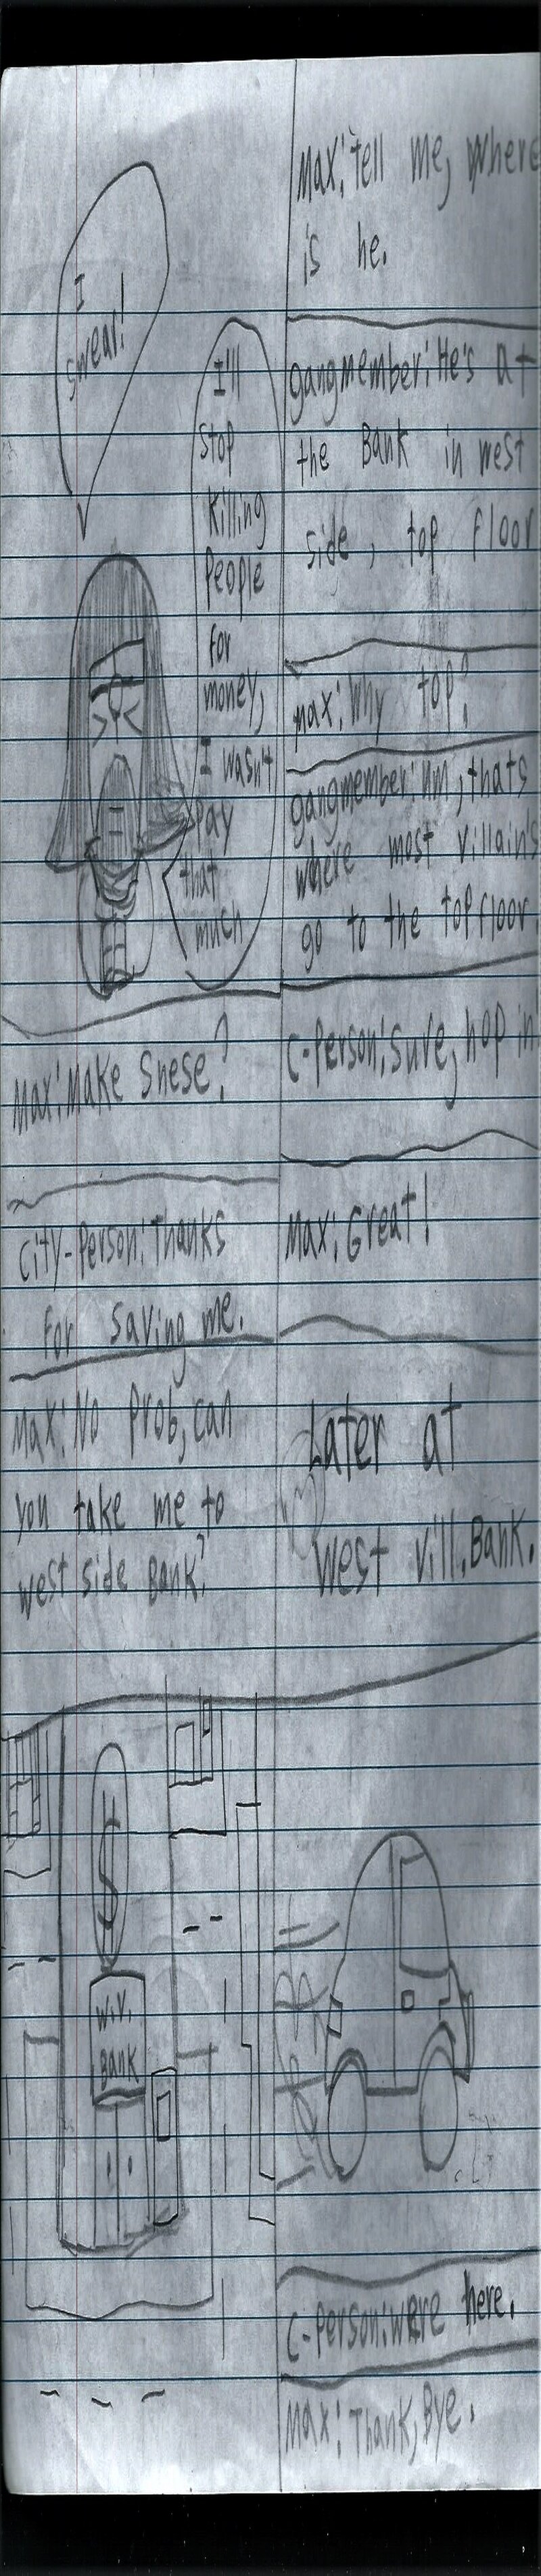 I
swear!
I'll
stop
killing
people
for
money,
I wasn't
pay
that
much
Max: tell me, where
is he.
gangmember: He's at
the Bank in west
side, top floor
max: Why top?
gangmember: um, thats
where most villains
go to the top floor.
Max: Make Snese?
City-Person: Thanks
for saving me.
Max: No Prob, can
you take me to
west side Bank?
C-Person: Sure, hop in
Max: Great!
Later at
West Vill. Bank.
$
W.V.
BANK
C-Person: were here.
Max: Thank, Bye.